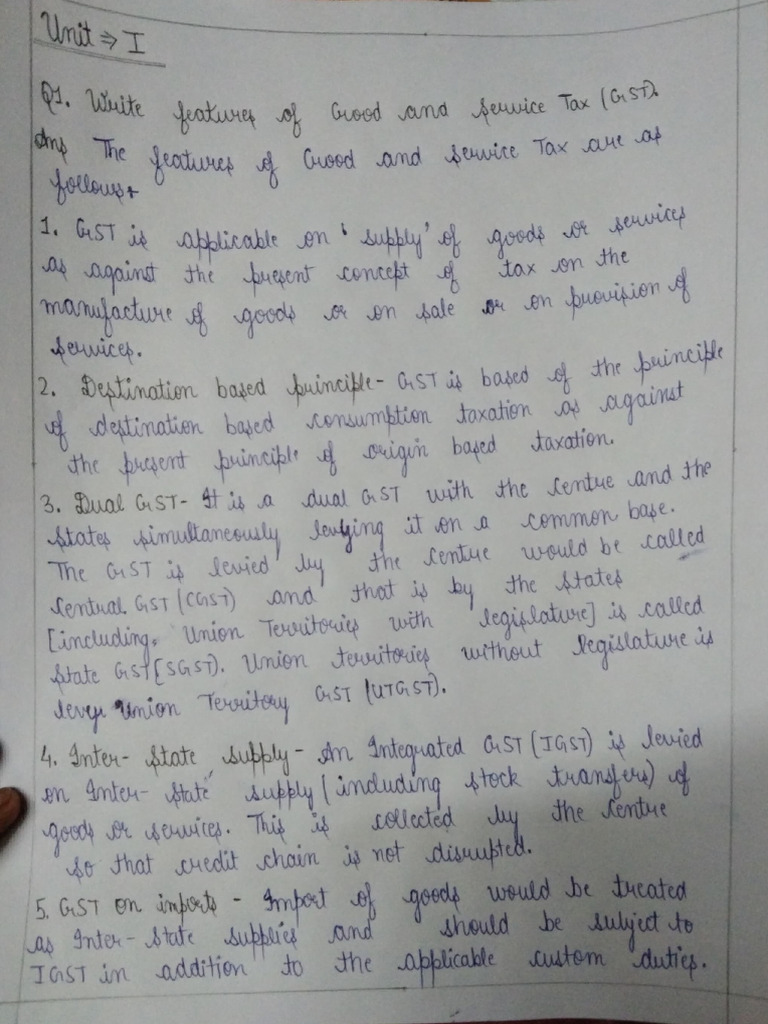 Unit ⇒ I
Q1. Write features of Good and Service Tax (GST).
Ans The features of Good and Service Tax are as
follows:
1. GST is applicable on 'supply' of goods or services
as against the present concept of tax on the
manufacture of goods or on sale or on provision of
services.
2. Destination based principle- GST is based of the principle
of destination based consumption taxation as against
the present principle of origin based taxation.
3. Dual GST- It is a dual GST with the Centre and the
States simultaneously levying it on a common base.
The GST is levied by the Centre would be called
Central GST (CGST) and that is by the States
[including, Union Territories with legislature] is called
State GST [SGST). Union territories without legislature is
levy Union Territory GST (UTGST).
4. Inter- State Supply - An Integrated GST (IGST) is levied
on Inter- State supply (including stock transfers) of
goods or services. This is collected by the Centre
so that credit chain is not disrupted.
5. GST on imports - Import of goods would be treated
as Inter- State supplies and should be subject to
IGST in addition to the applicable custom duties.